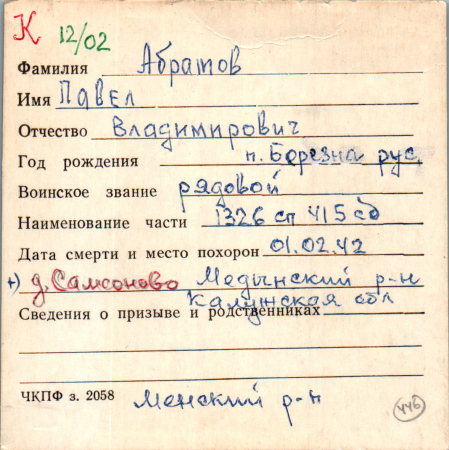 К 12/02
Фамилия Абратов
Имя Павел
Отчество Владимирович
Год рождения п. Березна рус.
Воинское звание рядовой
Наименование части 1326 сп 415 сд
Дата смерти и место похорон 01.02.42
+) д. Самсоново Медынский р-н
Калужская обл
Сведения о призыве и родственниках
ЧКПФ з. 2058 Менский р-н
446